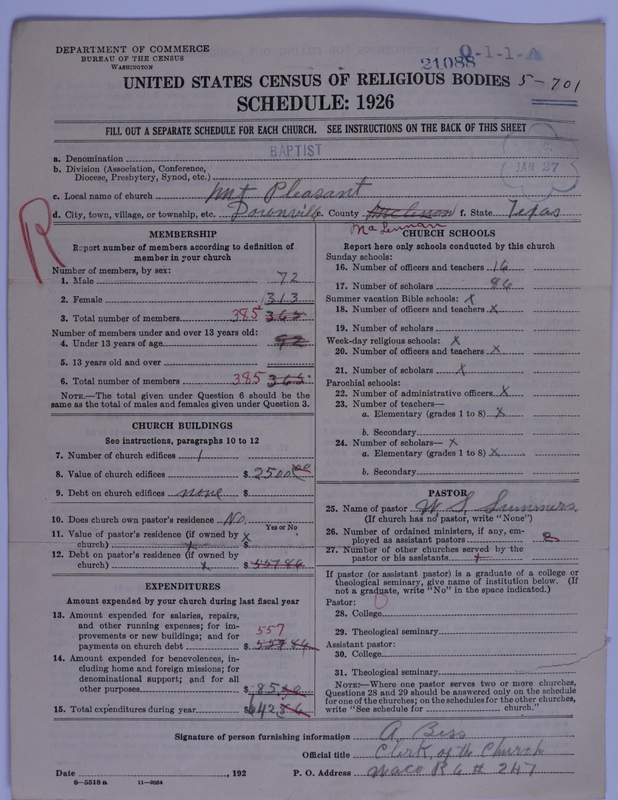 DEPARTMENT OF COMMERCE
BUREAU OF THE CENSUS
WASHINGTON
0-1-1-A
21088
UNITED STATES CENSUS OF RELIGIOUS BODIES 5-701
SCHEDULE: 1926
FILL OUT A SEPARATE SCHEDULE FOR EACH CHURCH. SEE INSTRUCTIONS ON THE BACK OF THIS SHEET
a. Denomination BAPTIST
b. Division (Association, Conference,
Diocese, Presbytery, Synod, etc.)
JAN 27
c. Local name of church Mt Pleasant
d. City, town, village, or township, etc. Downville e. County f. State Texas
McLennan
R
MEMBERSHIP
Report number of members according to definition of
member in your church
Number of members, by sex:
1. Male 72
2. Female 313
3. Total number of members 385 365
Number of members under and over 13 years old:
4. Under 13 years of age 92
5. 13 years old and over
6. Total number of members 385 365
NOTE.—The total given under Question 6 should be the
same as the total of males and females given under Question 3.
CHURCH BUILDINGS
See instructions, paragraphs 10 to 12
7. Number of church edifices 1
8. Value of church edifices $ 2500.00
9. Debt on church edifices none $
10. Does church own pastor's residence? No.
Yes or No
11. Value of pastor's residence (if owned by
church) x $ x
12. Debt on pastor's residence (if owned by
church) x $ 557 86
EXPENDITURES
Amount expended by your church during last fiscal year
13. Amount expended for salaries, repairs,
and other running expenses; for im-
provements or new buildings; and for
payments on church debt $ 557 86
557
14. Amount expended for benevolences, in-
cluding home and foreign missions; for
denominational support; and for all
other purposes $ 85.00
15. Total expenditures during year $ 642 86
CHURCH SCHOOLS
Report here only schools conducted by this church
Sunday schools:
16. Number of officers and teachers 16
17. Number of scholars 86
Summer vacation Bible schools: x
18. Number of officers and teachers x
19. Number of scholars
Week-day religious schools: x
20. Number of officers and teachers x
21. Number of scholars x
Parochial schools:
22. Number of administrative officers x
23. Number of teachers—
a. Elementary (grades 1 to 8) x
b. Secondary
24. Number of scholars— x
a. Elementary (grades 1 to 8) x
b. Secondary
PASTOR
25. Name of pastor W. S. Summers
(If church has no pastor, write "None")
26. Number of ordained ministers, if any, em-
ployed as assistant pastors
27. Number of other churches served by the
pastor or his assistants
If pastor (or assistant pastor) is a graduate of a college or
theological seminary, give name of institution below. (If
not a graduate, write "No" in the space indicated.)
Pastor:
28. College
29. Theological seminary
Assistant pastor:
30. College
31. Theological seminary
NOTE:—Where one pastor serves two or more churches,
Questions 28 and 29 should be answered only on the schedule
for one of the churches; on the schedules for the other churches,
write "See schedule for church."
Signature of person furnishing information A. Bess
Official title Clerk, of the Church
Date , 192 P. O. Address Waco R 6 # 247
8—5518a 11—9034